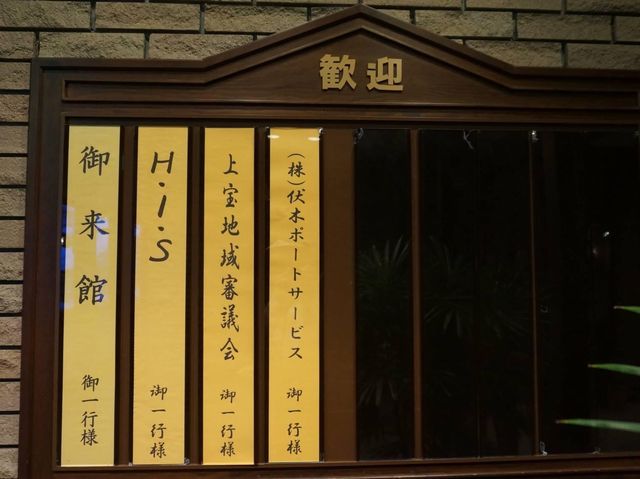 歓迎
(株)伏木ポートサービス 御一行様
上宝地域審議会 御一行様
H.I.S 御一行様
御来館 御一行様